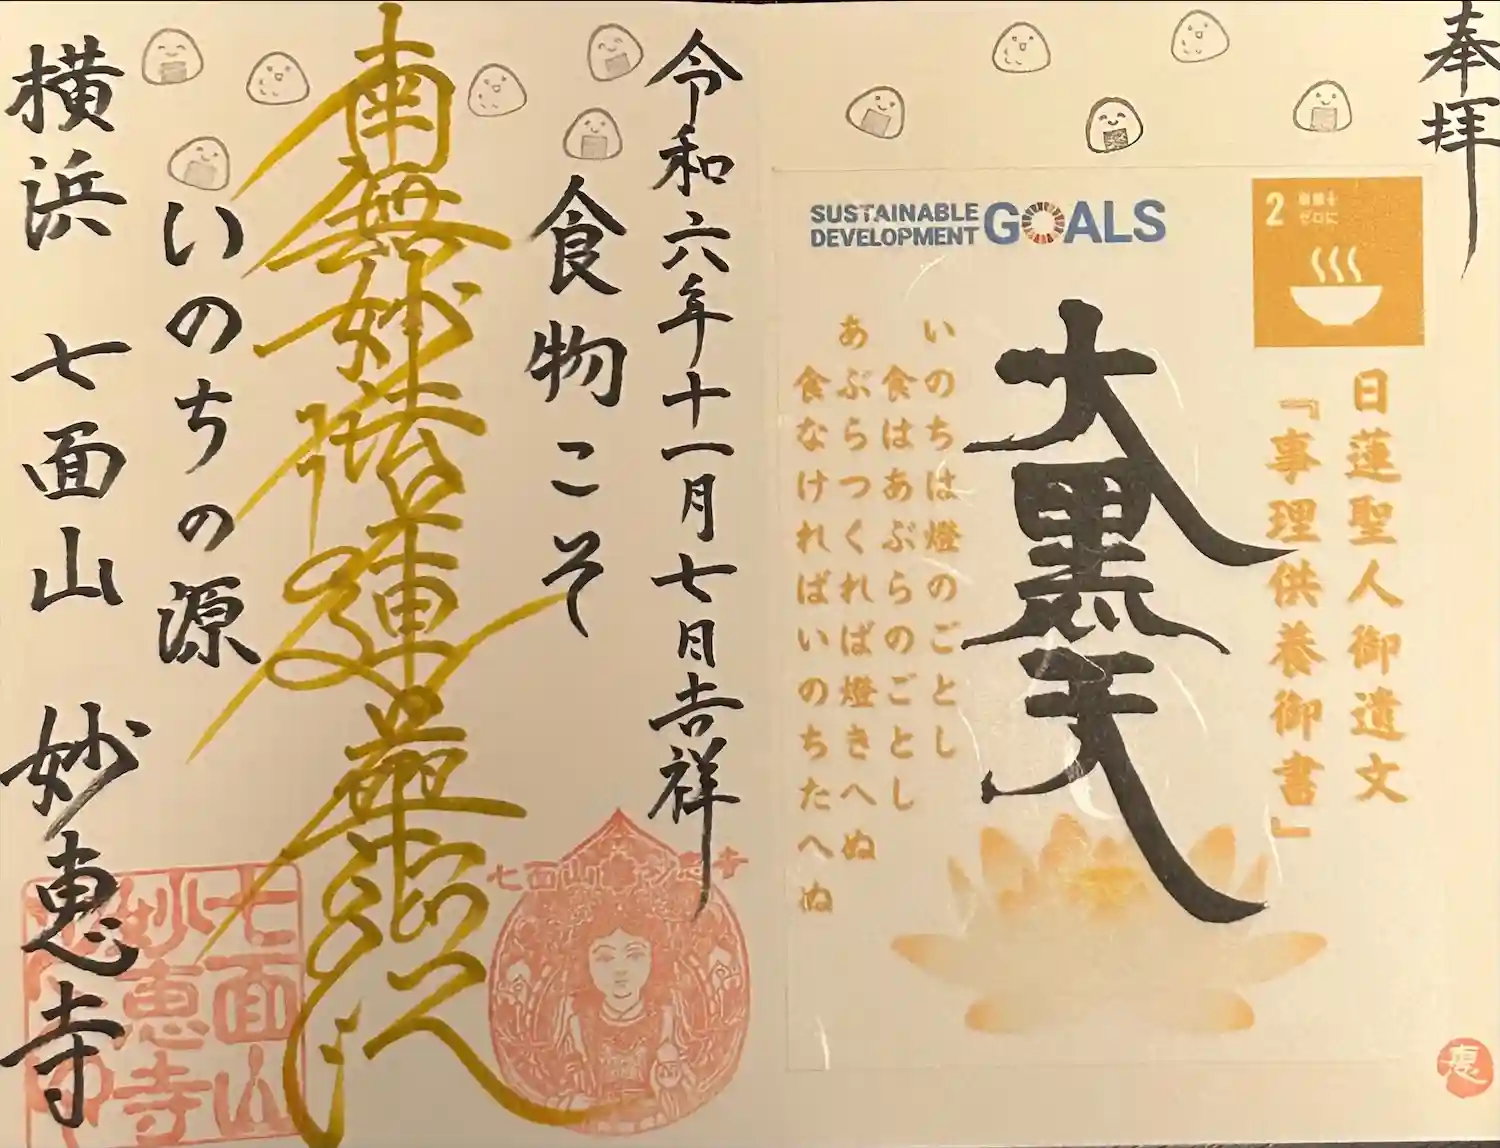 奉拝
2 飢餓を
ゼロに
SUSTAINABLE
DEVELOPMENT
GOALS
日蓮聖人御遺文
『事理供養御書』
大黒天
いのちは燈のごとし
食はあぶらのごとし
あぶらつくれば燈きへぬ
食なければいのちたへぬ
恵
令和六年十一月七日吉祥
食物こそ
南無妙法蓮華経
いのちの源
横浜 七面山 妙恵寺
七面山妙恵寺
七面山
妙恵寺